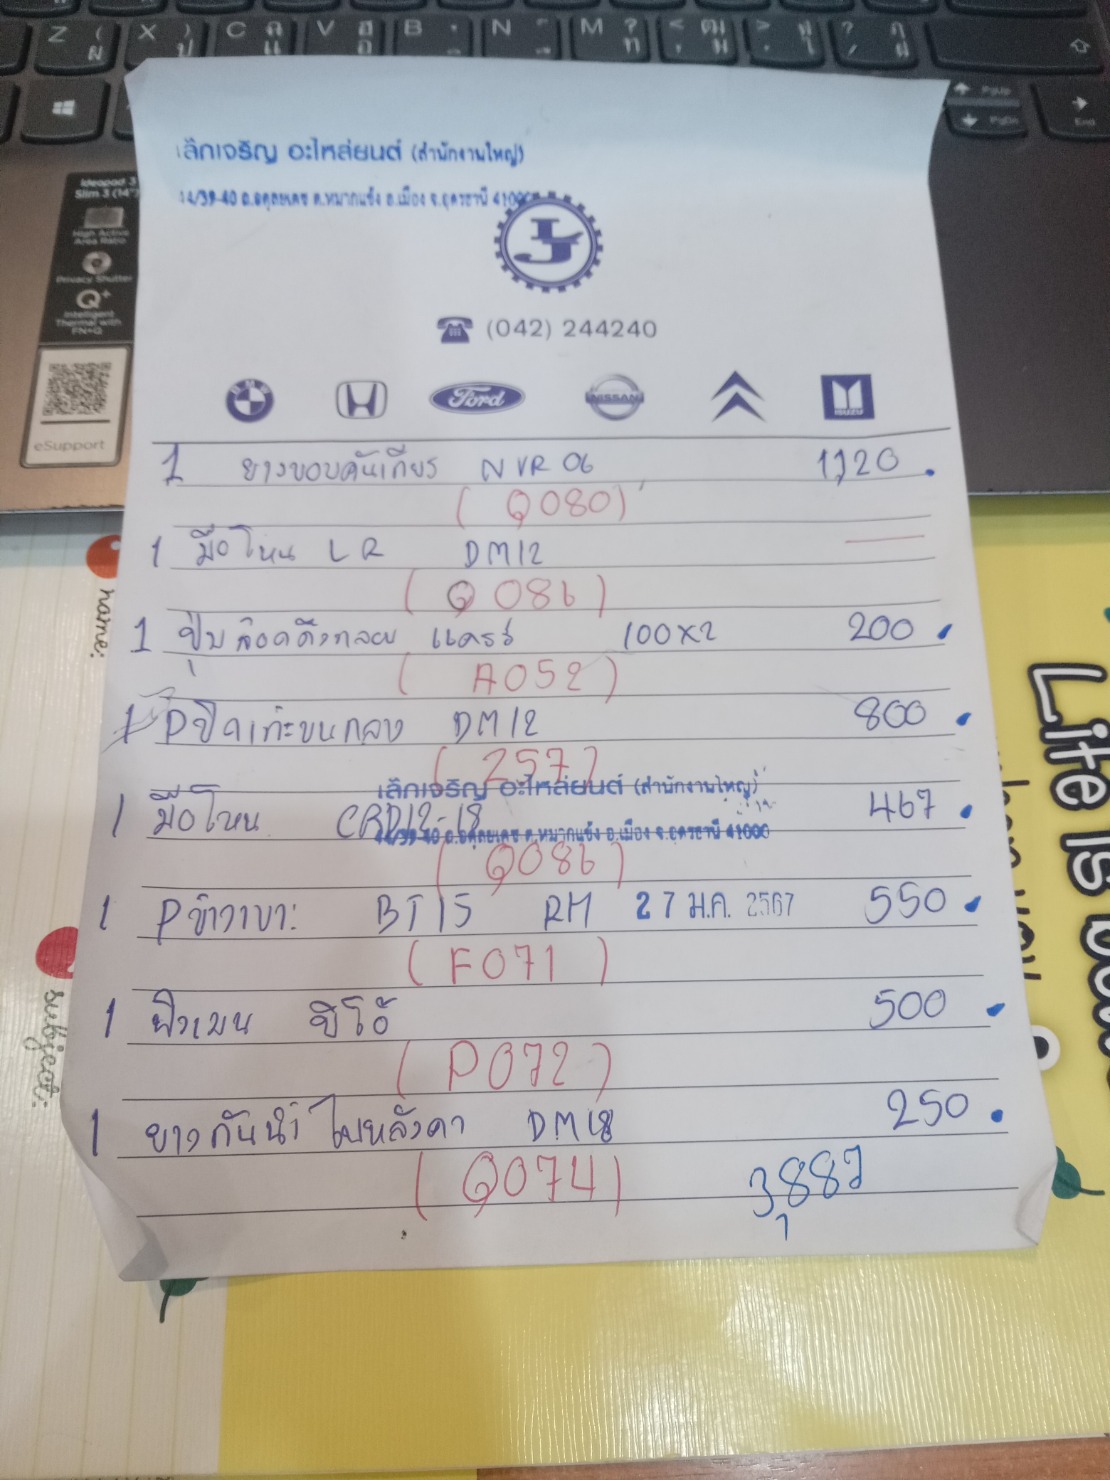 Z ( ผ
X ) ป
C ฉ แ
V ฮ อ
B
N
M ? ท
< ฒ ม
> ใ
? ฦ ฝ
PgUp
PgDn
End
Ideapad 3
Slim 3 (14")
High Active
Area Ratio
Privacy Shutter
Q+
Intelligent
Thermal with
FN+Q
eSupport
เล็กเจริญ อะไหล่ยนต์ (สำนักงานใหญ่)
14/39-40 ถ.อดุลยเดช ต.หมากแข้ง อ.เมือง จ.อุดรธานี 41000
LJ
(042) 244240
BMW
Ford
NISSAN
ISUZU
1 ยางขอบคันเกียร NVR 06 1,120 .
(Q080)
1 มือโหน LR DM12
(Q086)
1 ปุ่มล๊อดดึงกลอย แคร์รี่ 100x2 200 .
(A052)
1 Pปิดเก๊ะบนกลาง DM12 800 .
(257)
1 มือโหน CRD12-18 467 .
เล็กเจริญ อะไหล่ยนต์ (สำนักงานใหญ่)
14/39-40 ถ.อดุลยเดช ต.หมากแข้ง อ.เมือง จ.อุดรธานี 41000
(Q086)
1 Pข้างเบาะ BT15 RH 27 ม.ค. 2567 550 .
(F071)
1 500 .
(P072)
1 ยางกันน้ำ ใบหลังคา DM18 250 .
(Q074) 3,887
name:
subject:
Life is